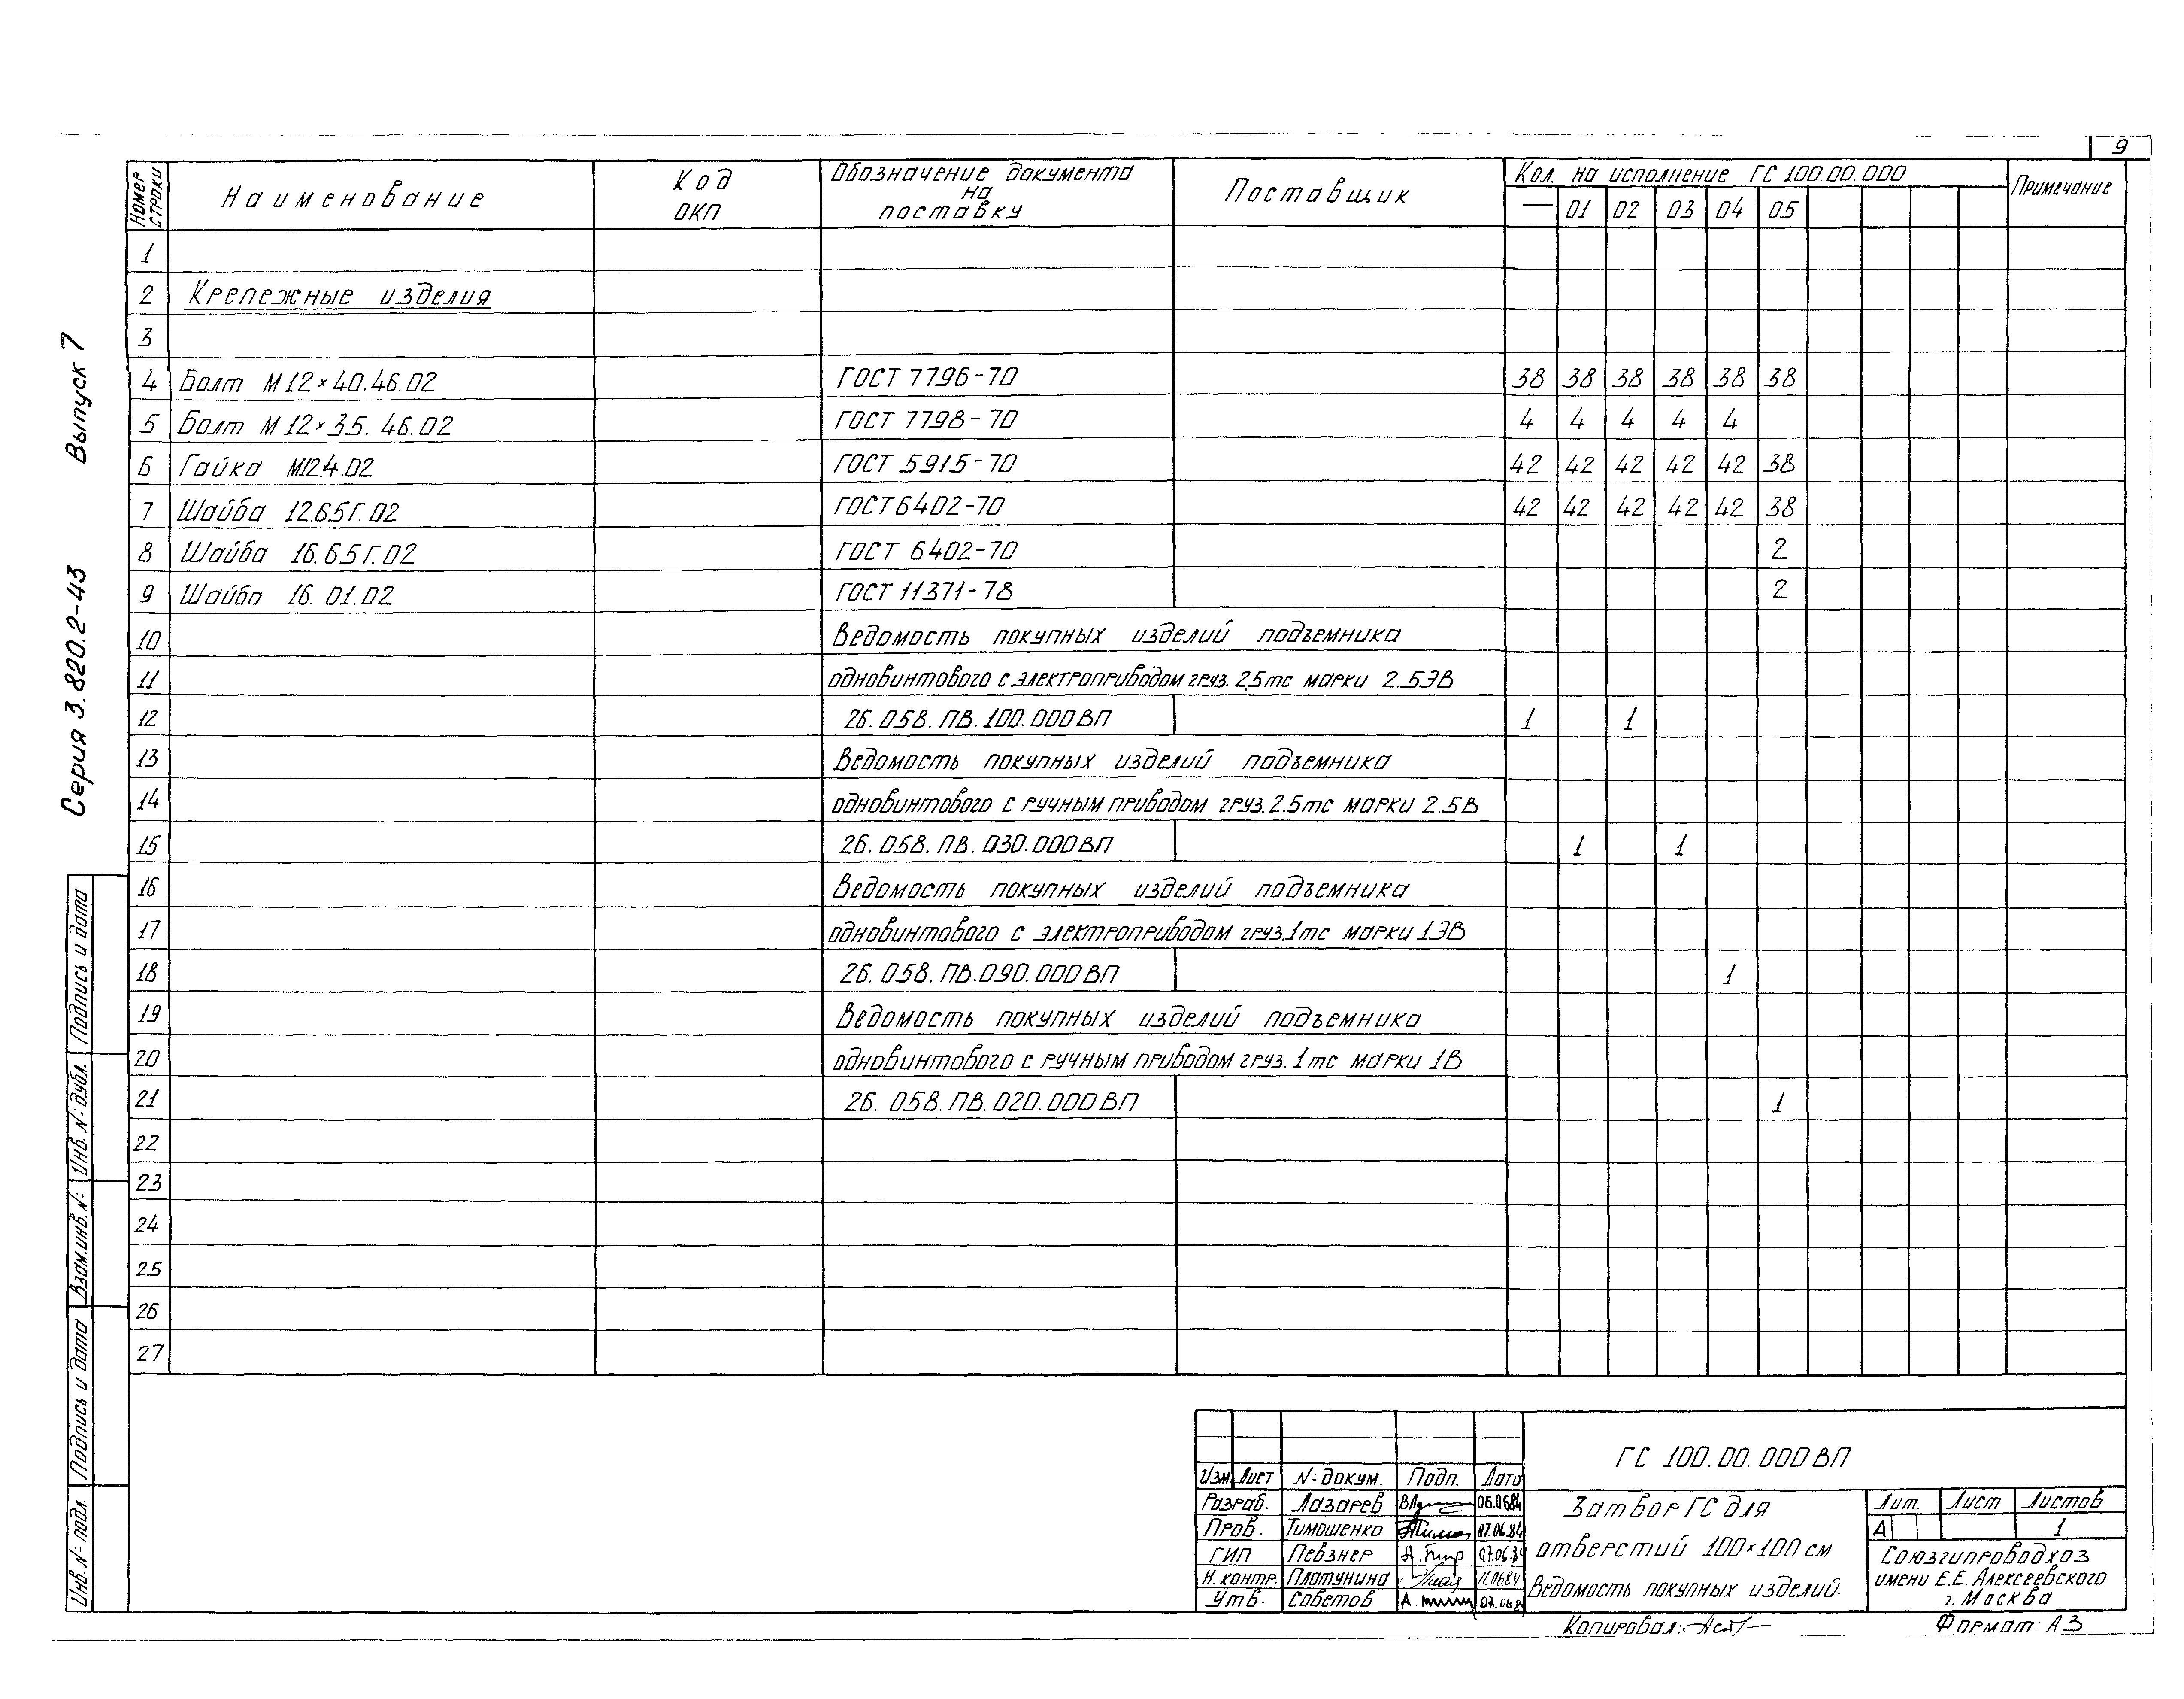 9
Серия 3.820.2-43 Выпуск 7
Номер строки Наименование Код ОКП Обозначение документа на поставку Поставщик Кол. на исполнение ГС 100.00.000 Примечание
— 01 02 03 04 05
1
2 Крепежные изделия
3
4 Болт М12×40.46.02 ГОСТ 7796-70 38 38 38 38 38 38
5 Болт М12×35.46.02 ГОСТ 7798-70 4 4 4 4 4
6 Гайка М12.4.02 ГОСТ 5915-70 42 42 42 42 42 38
7 Шайба 12.65Г.02 ГОСТ 6402-70 42 42 42 42 42 38
8 Шайба 16.65Г.02 ГОСТ 6402-70 2
9 Шайба 16.01.02 ГОСТ 11371-78 2
10 Ведомость покупных изделий подъемника
11 одновинтового с электроприводом груз. 2,5тс марки 2.5ЭВ
12 26.058.ПВ.100.000ВП 1 1
13 Ведомость покупных изделий подъемника
14 одновинтового с ручным приводом груз. 2.5тс марки 2.5В
15 26.058.ПВ.030.000ВП 1 1
16 Ведомость покупных изделий подъемника
17 одновинтового с электроприводом груз. 1тс марки 1ЭВ
18 26.058.ПВ.090.000ВП 1
19 Ведомость покупных изделий подъемника
20 одновинтового с ручным приводом груз. 1тс марки 1В
21 26.058.ПВ.020.000ВП 1
22
23
24
25
26
27
Подпись и дата
Инв. № дубл.
Взам. инв. №
Подпись и дата
Инв. № подл.
Изм. Лист № докум. Подп. Дата
Разраб. Лазарев 06.06.84
Пров. Тимошенко 07.06.84
ГИП Певзнер 07.06.84
Н. контр. Платунина 11.06.84
Утв. Советов 07.06.8
ГС 100.00.000ВП
Затвор ГС для
отверстий 100×100 см
Ведомость покупных изделий.
Лит. Лист Листов
А 1
Союзгипроводхоз
имени Е.Е. Алексеевского
г. Москва
Копировал: Формат: А3